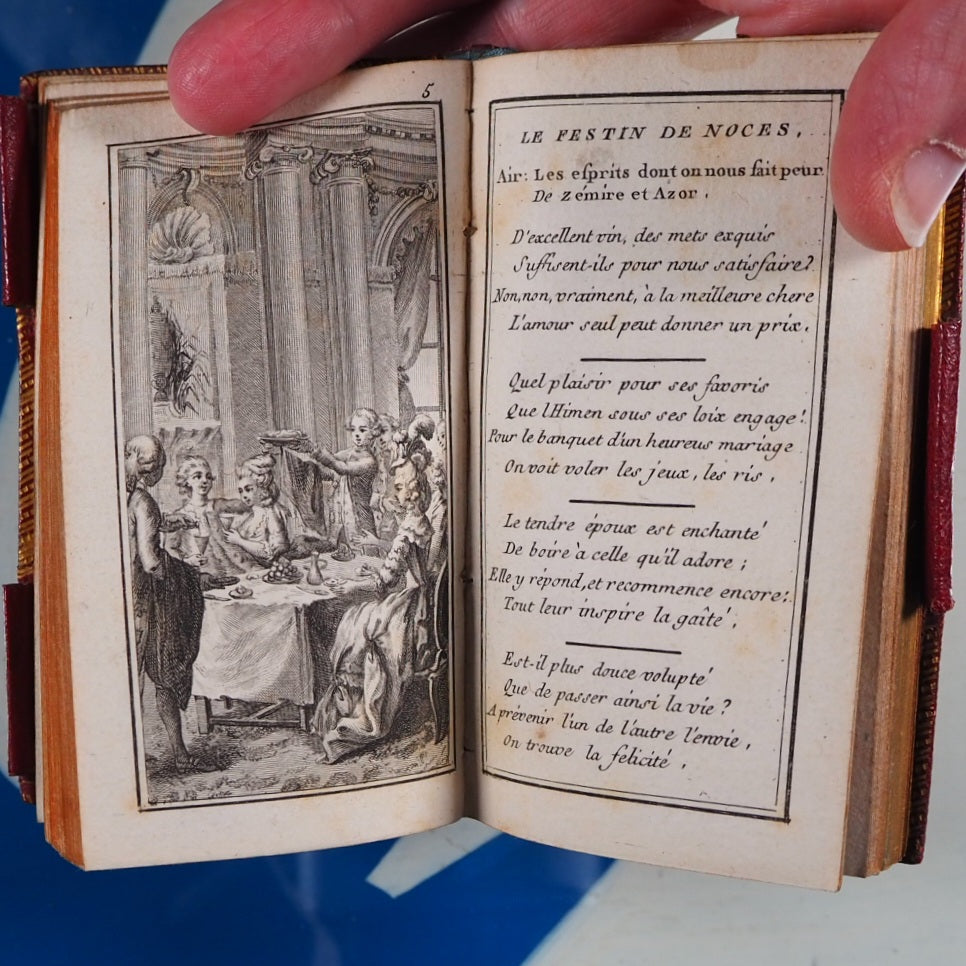 5
LE FESTIN DE NOCES,
Air: Les esprits dont on nous fait peur
De zémire et Azor.
D'excellent vin, des mets exquis
Suffisent-ils pour nous satisfaire?
Non, non, vraiment, à la meilleure chere
L'amour seul peut donner un prix.
Quel plaisir pour ses favoris
Que l'Himen sous ses loix engage!
Pour le banquet d'un heureus mariage
On voit voler les jeux, les ris,
Le tendre époux est enchanté
De boire à celle qu'il adore;
Elle y répond, et recommence encore:
Tout leur inspire la gaîté,
Est-il plus douce volupté
Que de passer ainsi la vie?
A prévenir l'un de l'autre l'envie,
On trouve la felicité,